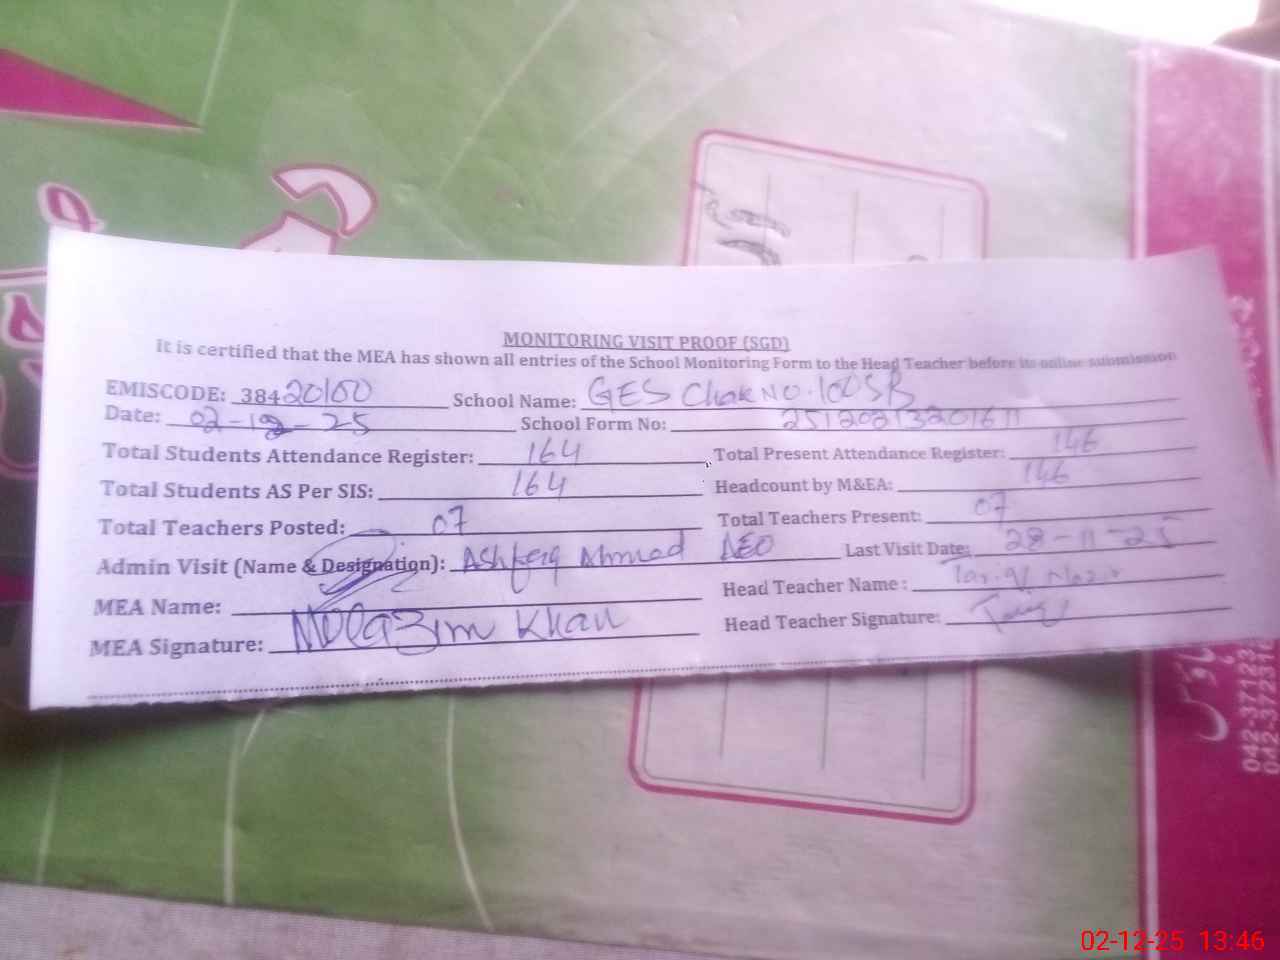 MONITORING VISIT PROOF (SGD)
It is certified that the MEA has shown all entries of the School Monitoring Form to the Head Teacher before its online submission
EMISCODE: 38420100 School Name: GES Chak NO. 100SB
Date: 02-12-25 School Form No:
Total Students Attendance Register: 164 Total Present Attendance Register: 146
Total Students AS Per SIS: 164 Headcount by M&EA: 146
Total Teachers Posted: 07 Total Teachers Present: 07
Admin Visit (Name & Designation): Ashfaq Ahmad AEO Last Visit Date: 28-11-25
MEA Name: Head Teacher Name: Tariq Nazir
MEA Signature: Khan Head Teacher Signature:
042-37123
042-37231
02-12-25 13:46